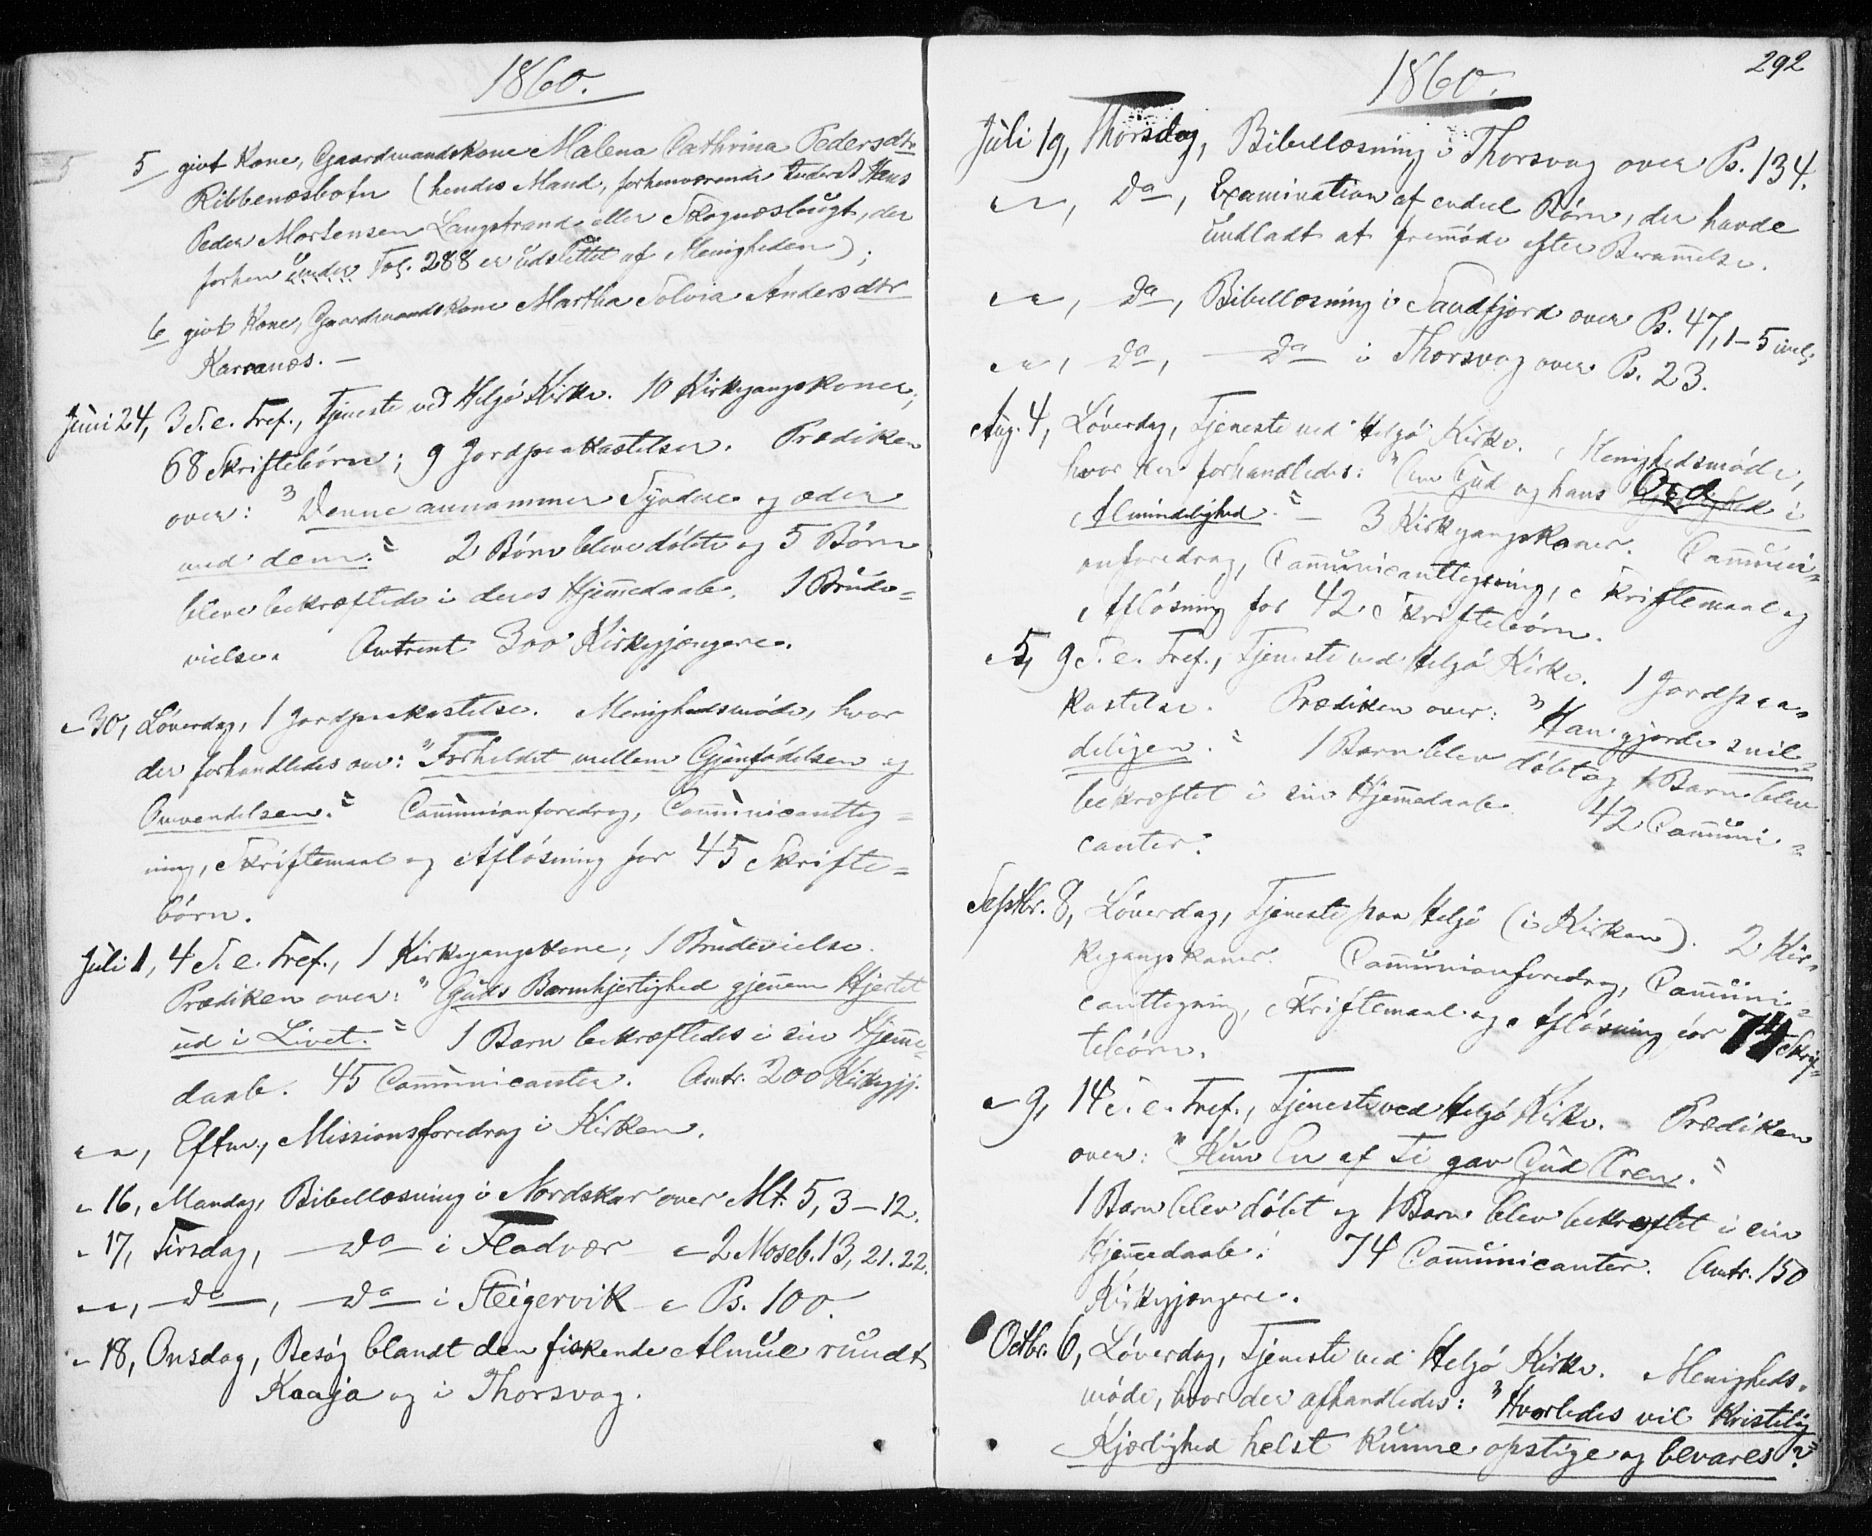 1860.
5 givt Kone, Gaardmandskone Malena Cathrina Pedersdtr
Ribbenæsbotn (hendes Mand, forhenværende Inderst Hans
Peder Mortensen Langstrand eller Skognæsbugt, der
forhen under Fol. 288 er udslettet af Menigheden);
6 givt Kone, Gaardmandskone Martha Solvia Andersdtr
Karvanæs. –
Juni 24, 3 S. e. Tref., Tjeneste ved Helgø Kirke. 10 Kirkegangskoner;
68 Skriftebørn; 9 Jordpaakastelser. Prædiken
over: "Denne annammer Syndere og æder
med dem." 2 Børn bleve døbte og 5 Børn
bleve bekræftede i deres Hjemmedaab. 1 Brude=
vielse. Omtrent 300 Kirkegjængere.
" 30, Løverdag, 1 Jordpaakastelse. Menighedsmøde, hvor
der forhandledes over: "Forholdet mellem Gjenfødelsen og
Omvendelsen." Communionforedrag, Communicantteg=
ning, Skriftemaal og Afløsning for 45 Skrifte=
børn.
Juli 1, 4 S. e. Tref., 1 Kirkegangskone; 1 Brudevielse.
Prædiken over: "Guds Barmhjertighed gjennem Hjertet
ud i Livet." 1 Barn bekræftedes i sin Hjemme=
daab. 45 Communicanter. Omtr. 200 Kirkegjj.
" ", Efterm., Missionsforedrag i Kirken.
" 16, Mandag, Bibellæsning i Nordskar over Mt. 5, 3–12.
" 17, Tirsdag, — Do — i Fladvær " 2 Moseb. 13, 21. 22.
" ", — Do —, — Do — i Steigervik " Ps. 100.
" 18, Onsdag, Besøg blandt den fiskende Almue rundt
Kaaja og i Thorsvag.
292
1860.
Juli 19, Thorsdag, Bibellæsning i Thorsvag over Ps. 134.
" ", Do, Examination af endeel Børn, der havde
undladt at fremmøde efter Berammelse.
" ", Do, Bibellæsning i Sandfjord over Ps. 47, 1–5 incl.
" ", Do, — Do — i Thorsvag over Ps. 23.
Aug. 4, Løverdag, Tjeneste ved Helgø Kirke. Menighedsmøde,
hvor der forhandledes: "Om Gud og hans Ord i
Almindelighed." – 3 Kirkegangskoner. Communi=
onforedrag, Communicanttegning, Skriftemaal og
Afløsning for 42 Skriftebørn.
" 5, 9 S. e. Tref., Tjeneste ved Helgø Kirke. 1 Jordpaa=
kastelse. Prædiken over: "Han gjorde snil=
deligen." 1 Barn blev døbt og 1 Barn blev
bekræftet i sin Hjemmedaab. 42 Communi=
canter.
Septbr. 8, Løverdag, Tjeneste paa Helgø (i Kirken). 2 Kir=
kegangskoner. Communionforedrag, Communi=
canttegning, Skriftemaal og Afløsning for 74 Skrif=
tebørn.
" 9, 14 S. e. Tref., Tjeneste ved Helgø Kirke. – Prædiken
over: "Kun En af Ti gav Gud Æren."
1 Barn blev døbt og 1 Barn blev bekræftet i sin
Hjemmedaab. 74 Communicanter. Omtr. 150
Kirkegjængere.
Octbr. 6, Løverdag, Tjeneste ved Helgø Kirke. Menigheds=
møde, hvor der afhandledes: "Hvorledes vil kristelig
Kjærlighed helst kunne opstige og bevares?"